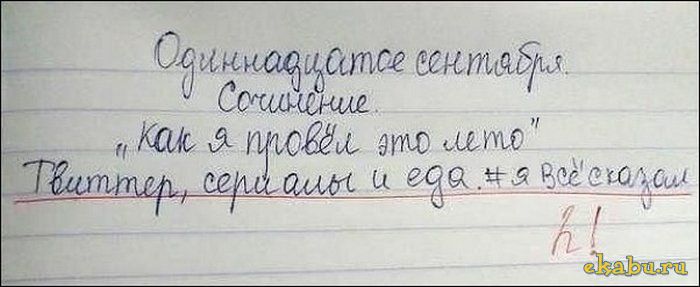 Одиннадцатое сентября.
Сочинение.
„Как я провёл это лето"
Твиттер, сериалы и еда. #я всё сказал
2!
ekabu.ru